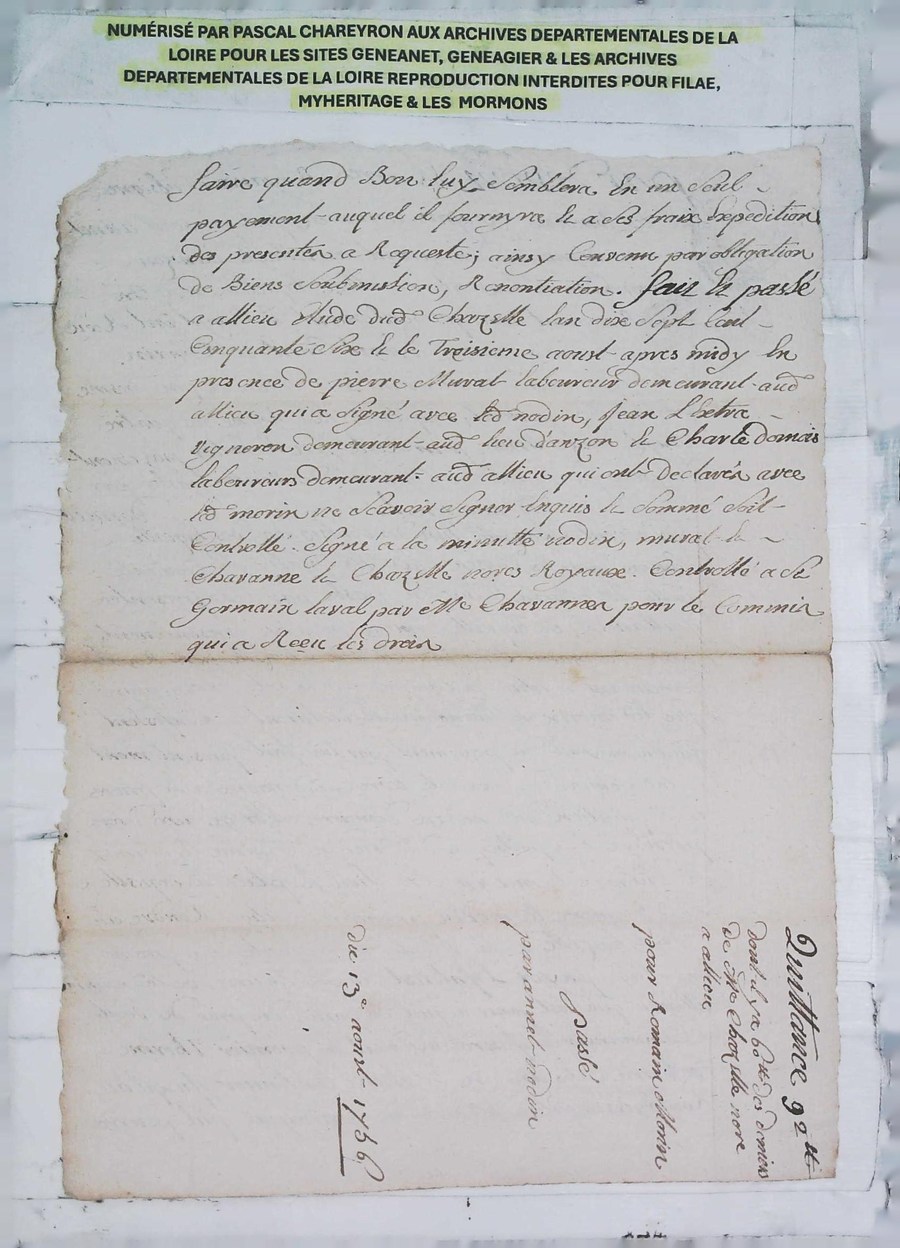 NUMÉRISÉ PAR PASCAL CHAREYRON AUX ARCHIVES DEPARTEMENTALES DE LA
LOIRE POUR LES SITES GENEANET, GENEAGIER & LES ARCHIVES
DEPARTEMENTALES DE LA LOIRE REPRODUCTION INTERDITES POUR FILAE,
MYHERITAGE & LES MORMONS
faire quand Bon luy Semblera En un Seul
payement auquel il fournyra Et a Ses fraix Expedition
des presentes a Requeste; ainsy Convenu par obligation
de Biens Soubmission, Renontiation. fait Et passé
a allieu Etude dud Chazelle lan dix Sept Cent
Cinquante Six Et le Troisieme aoust apres midy En
presence de pierre Murat laboureur demeurant aud
allieu qui a Signé avec led nodin, Jean
vigneron demeurant aud lieu danzon Et Charle domais
laboureurs demeurant aud allieu qui ont declarés avec
led morin ne Scavoir Signer Enquis Et Sommé Soit
Controllé. Signé a la minutte nodin, murat
Chavanne Et Chazelle nores Royaux. Controllé a St
Germain laval par Me Chavannes pour le Commis
qui a Reçu les drois
Quittance 92 tt
dont il y a 60 tt des deniers
de Me Chazelle nore
a alieu
pour Romain Morin
passé
par annet nodin
du 13e aoust 1756